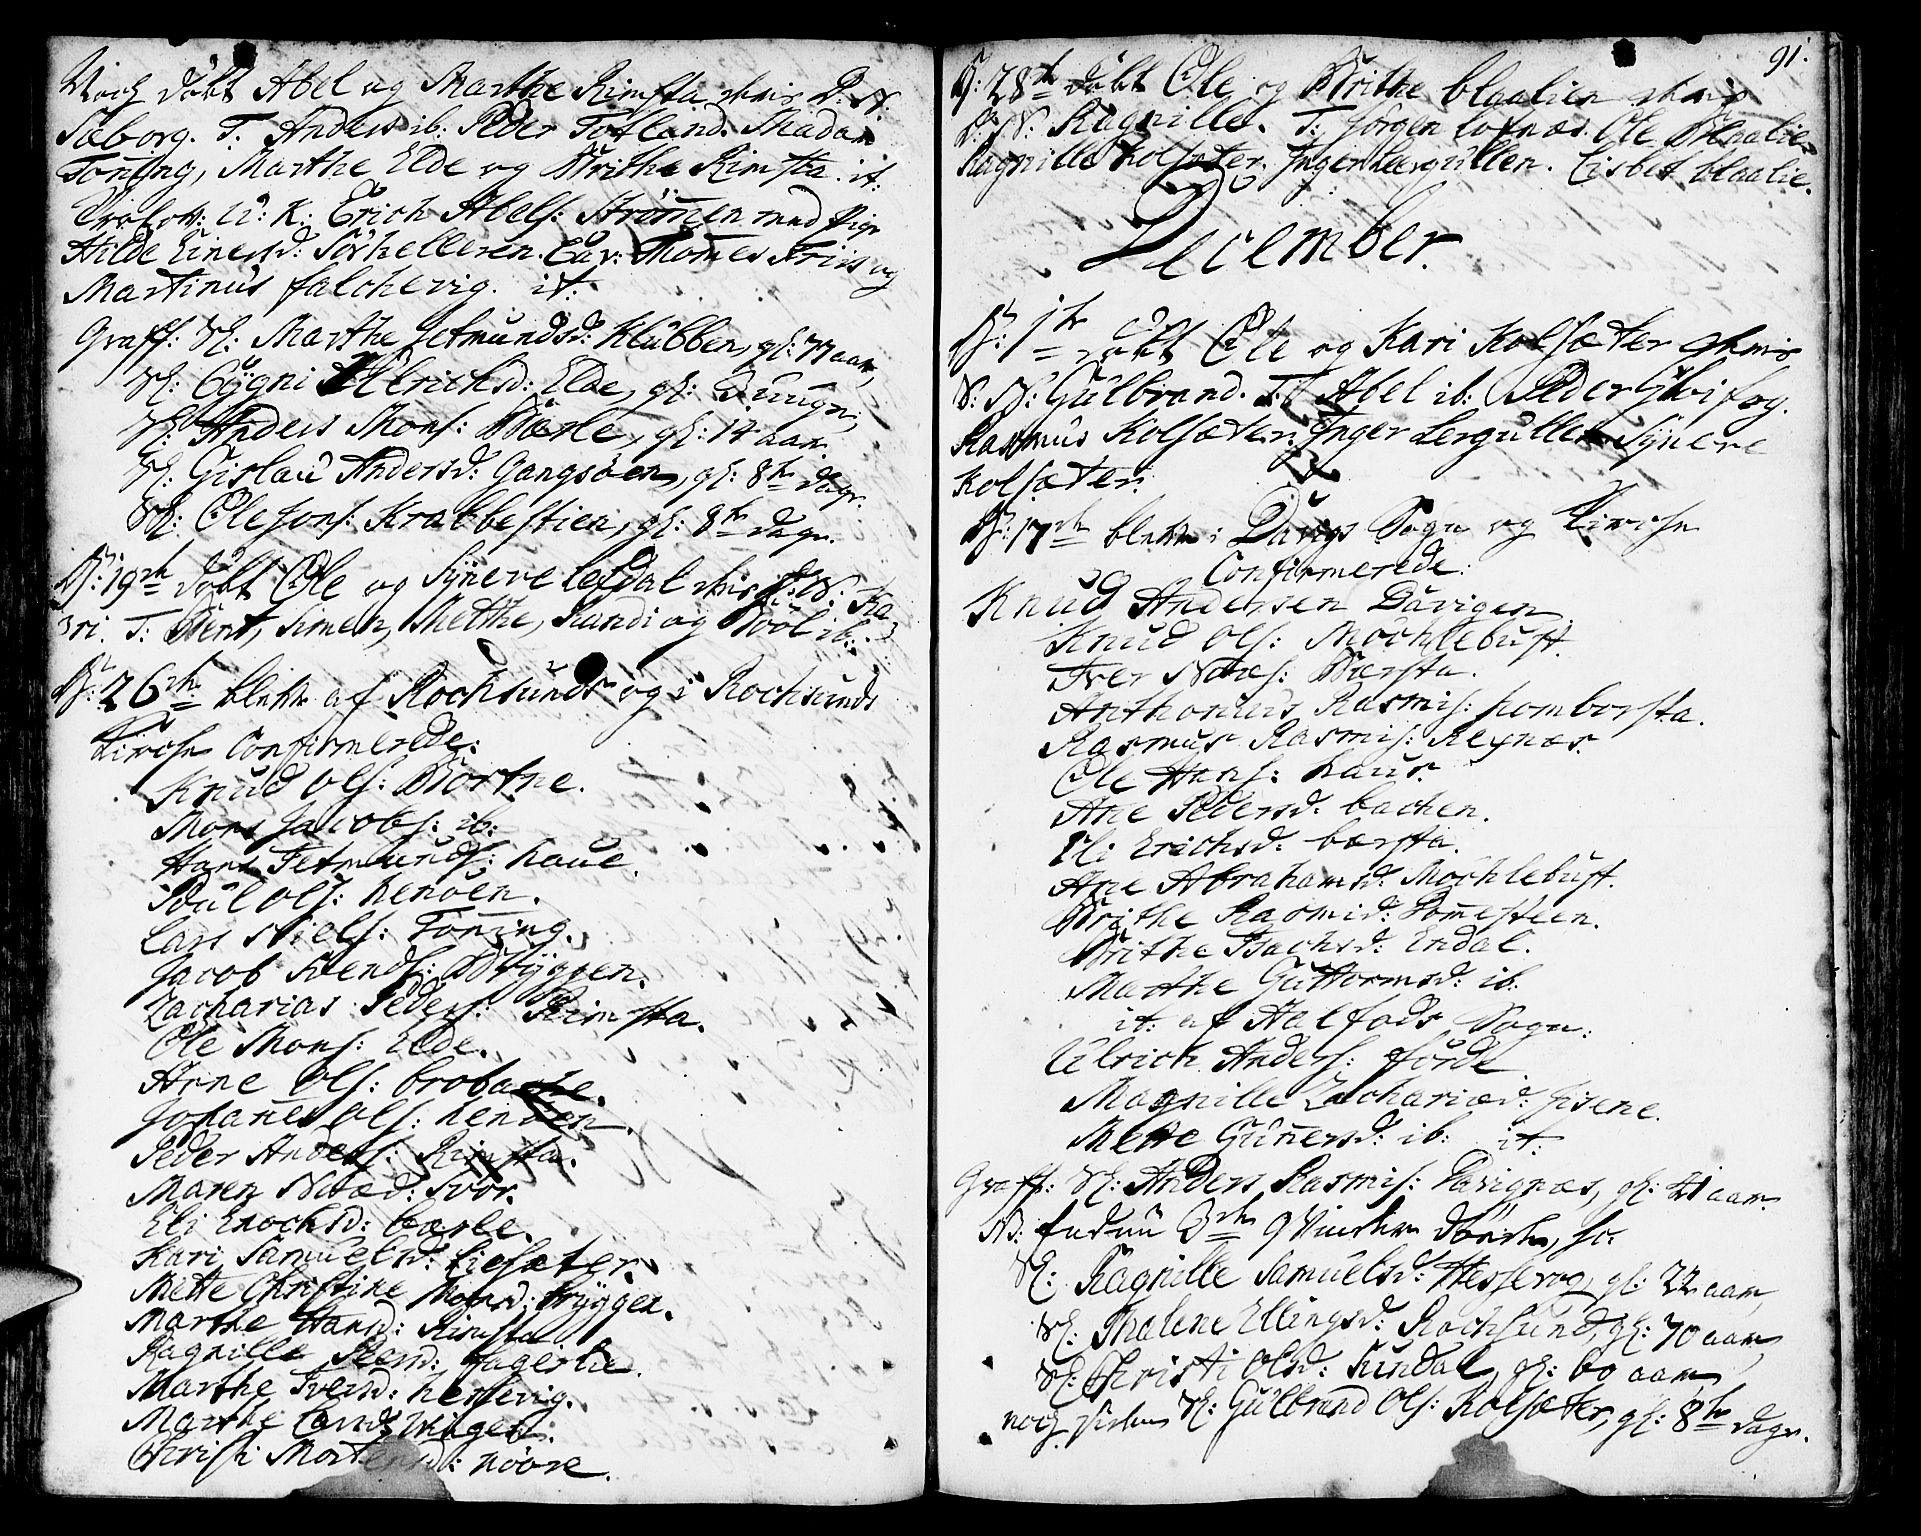 Noch döbt Abel og Marthe Rimsta deris D: N:
Søeborg. T: Anders ib: Peder Totland. Madam
Tonning, Marthe Elde og Brithe Rimsta. it:
Trolov: U: K: Erich Abels: Strømmen med Pige
Hilde Einersd: Sørhelleren. Cav: Thomes Friis og
Martinus falchevig. it:
Graff: N: Marthe Jetmundsd: Klubben, gl: 77 aar,
N: Ullrichsd: Elde, gl: 3 uuger,
N: Anders Mons: Bærle, gl: 14 aar.
N: Gislau Andersd: Gangsøen, gl: 8te dage.
N: Ole Jons: Krabbestien, gl: 8te dage.
D: 19de döbt Ole og Synneve Lefdal deris d: N: Ka
ri. T: Bent, Simen, Methe, Randi og Bööl ib:
D: 26de bleve af Rochsunds og i Rochsunds
Kirche Confirmerede:
Knud Ols: Bortne.
Mons Jacobs: ib:
Hans Tetmunds: haue.
Poul Ols: henöen.
Lars Niels: Tonning.
Jacob Svends: Bryggen.
Zacharias Peders: Rimsta.
Ole Mons: Elde.
Arne Ols: brobache.
Johannes Ols: henöen.
Peder Anders: Rimsta.
Maren Notæd: Svor.
Eli Enochsd: bærle.
Kari Samuelsd: Liesæter.
Mette Christine Monsd: Bryggen.
Marthe Hansd: Rimsta
Ragnille Steensd: fagerlie.
Marthe Svensd: hessevig.
Marthe Larsd:
Christi Mortensd: nöore.
91:
D: 28de döbt Ole og Brithe blaalien deris
D: N: Ragnille. T: Jörgen lofnæs. Ole Blaalie,
Ragnille Kolsæter. Inger Leergullen. Lisbet blaalie.
December.
D: 1te döbt Ole og Kari Kolsæter deris
S: N: Gulbrand. T: Abel ib: Peder
Rasmus Kolsæter. Inger Lergullen Synneve
Kolsæter.
D: 17de bleve i Davigs Sogn og Kirche
Confirmerede:
Knud Andersen Davigen
Knud Ols: Möchlebust.
Iver Notæs: Bærsta.
Anthonius Rasmis: homborsta.
Rasmus Rasmis: Rexnæs.
Ole Hans: haus.
Ane Pedersd: bachen.
Eli Erichsd: bærsta.
Ane Abrahamsd: Möchlebust.
Brithe Rasmisd: Domesteen.
Brithe Isachsd: Endal.
Marthe Guttormsd: ib.
it: af Aalfods Sogn:
Ulrich Anders: förde
Magnille Zachariæd: hisene.
Mette Gunnersd: ib: it:
Graff: N: Anders Rasmis: Davignæs, gl: 41 aar.
NB: endnu 3de qvinder döde, so.
N: Ragnille Samuelsd: Hessevog, gl: 22 aar,
N: Malene Ellingsd: Rochsund, gl: 70 aar,
N: Christi Olsd: Sundal, gl: 60 aar,
noch N: Gulbrand Ols: Kolsæter, gl: 8te dage.